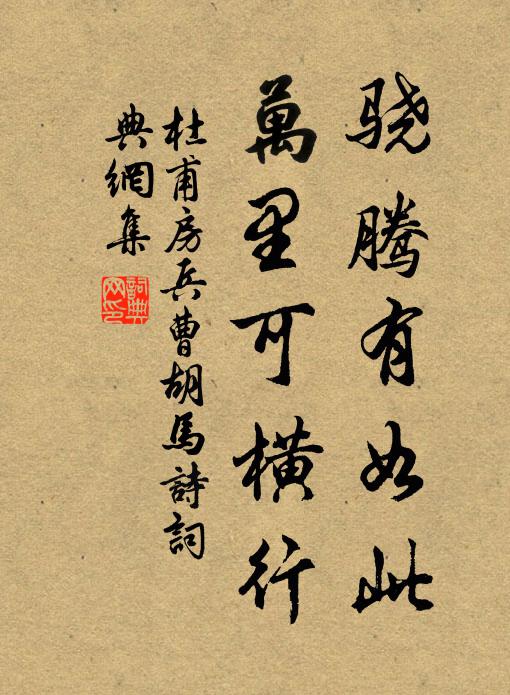 骁腾有如此
萬里可橫行
杜甫房兵曹胡馬詩詞
典網集
詞典
网印